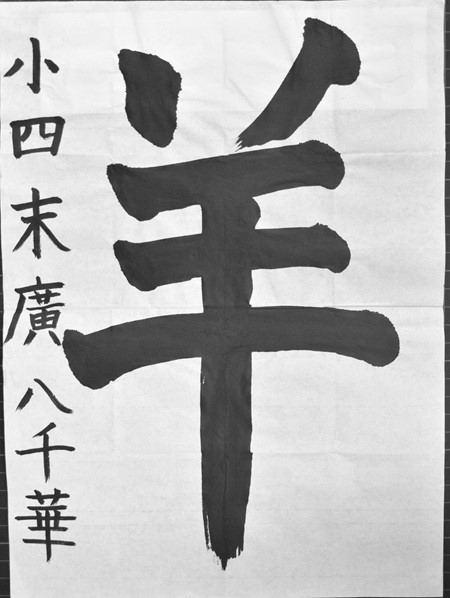 羊
小四 末廣八千華